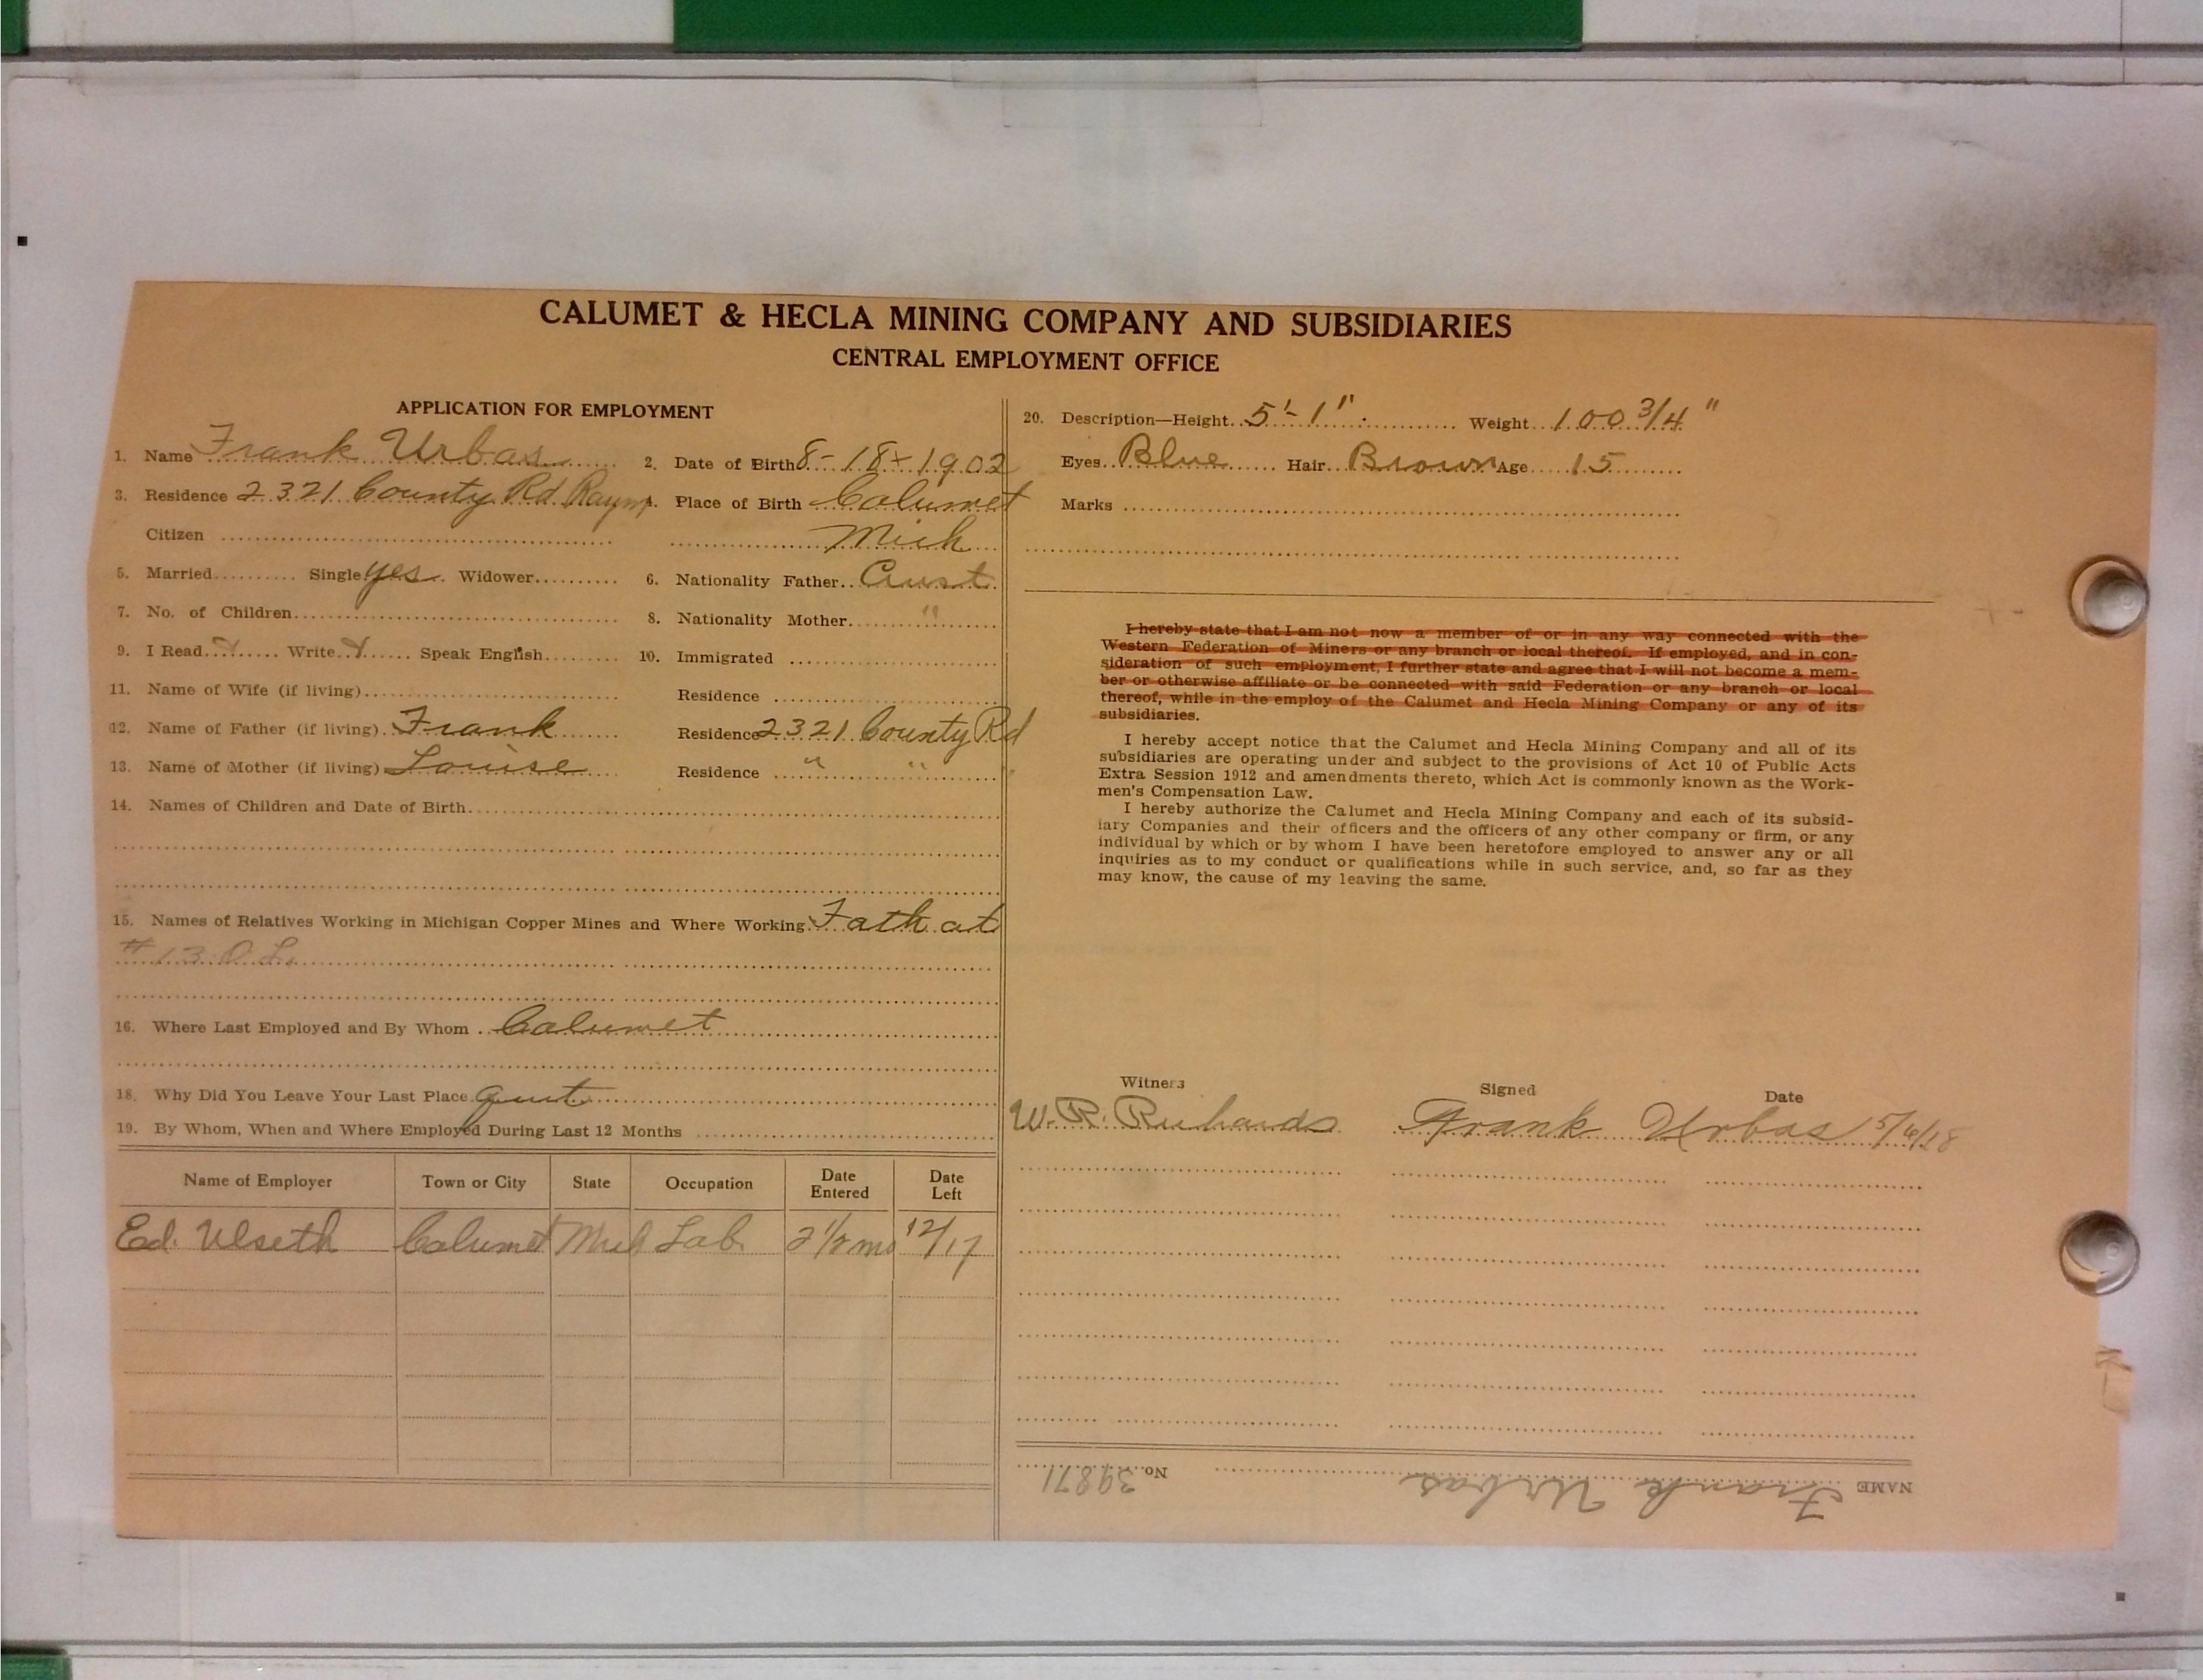 CALUMET & HECLA MINING COMPANY AND SUBSIDIARIES
CENTRAL EMPLOYMENT OFFICE
APPLICATION FOR EMPLOYMENT
1. Name Frank Urbas 2. Date of Birth 8-18-1902
3. Residence 2321 County Rd Raym 4. Place of Birth Calumet
Citizen Mich
5. Married Single yes Widower 6. Nationality Father Aust
7. No. of Children 8. Nationality Mother "
9. I Read Write Speak English 10. Immigrated
11. Name of Wife (if living) Residence
12. Name of Father (if living) Frank Residence 2321 County Rd
13. Name of Mother (if living) Louise Residence " "
14. Names of Children and Date of Birth
15. Names of Relatives Working in Michigan Copper Mines and Where Working Fath at
#13 O.L.
16. Where Last Employed and By Whom Calumet
18. Why Did You Leave Your Last Place quit
19. By Whom, When and Where Employed During Last 12 Months
Name of Employer Town or City State Occupation Date Entered Date Left
Ed. Ulseth Calumet Mich Lab. 2 1/2 mo 12/17
20. Description—Height 5'-1" Weight 100 3/4 "
Eyes Blue Hair Brown Age 15
Marks
I hereby state that I am not now a member of or in any way connected with the
Western Federation of Miners or any branch or local thereof. If employed, and in con-
sideration of such employment, I further state and agree that I will not become a mem-
ber or otherwise affiliate or be connected with said Federation or any branch or local
thereof, while in the employ of the Calumet and Hecla Mining Company or any of its
subsidiaries.
I hereby accept notice that the Calumet and Hecla Mining Company and all of its
subsidiaries are operating under and subject to the provisions of Act 10 of Public Acts
Extra Session 1912 and amendments thereto, which Act is commonly known as the Work-
men's Compensation Law.
I hereby authorize the Calumet and Hecla Mining Company and each of its subsid-
iary Companies and their officers and the officers of any other company or firm, or any
individual by which or by whom I have been heretofore employed to answer any or all
inquiries as to my conduct or qualifications while in such service, and, so far as they
may know, the cause of my leaving the same.
Witness Signed Date
W. R. Richards Frank Urbas 5/6/18
NAME Frank Urbas No. 39871